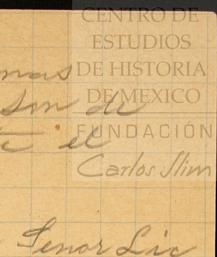 CENTRO DE
ESTUDIOS
DE HISTORIA
DE MEXICO
FUNDACIÓN
Carlos Slim
mas
son de
te el
Senor Lic